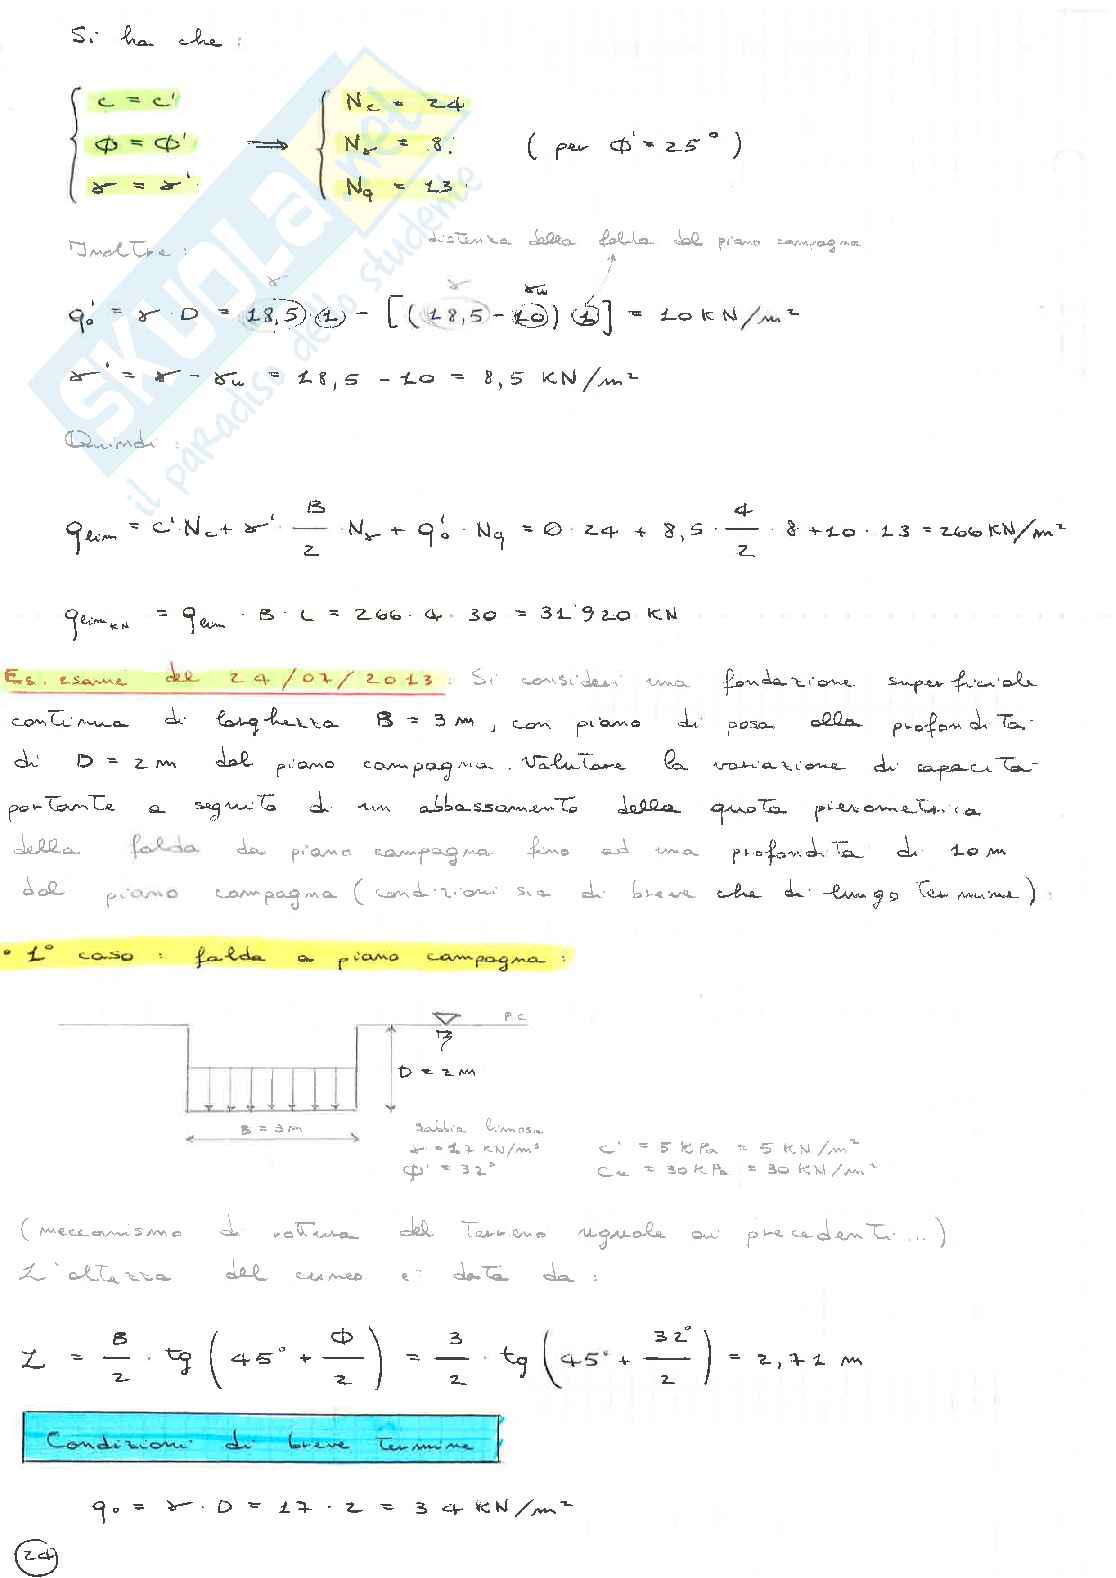 Si ha che :
c = c' Nc = 24
Φ = Φ' ⟹ Nγ = 8 ( per Φ' = 25° )
γ = γ' Nq = 13
Inoltre : distanza della falda dal piano campagna
γ γ γw
q'o = γ · D = 18,5 · 1 - [(18,5 - 10) 1] = 10 KN/m²
γ' = γ - γw = 18,5 - 10 = 8,5 KN/m²
Quindi :
qlim = c' · Nc + γ' · B/2 · Nγ + q'o · Nq = 0 · 24 + 8,5 · 4/2 · 8 + 10 · 13 = 266 KN/m²
qlimKN = qlim · B · L = 266 · 4 · 30 = 31'920 KN
Es. esame del 24/07/2013 : Si consideri una fondazione superficiale
continua di larghezza B = 3 m, con piano di posa alla profondità
di D = 2 m dal piano campagna. Valutare la variazione di capacità
portante a seguito di un abbassamento della quota piezometrica
della falda da piano campagna fino ad una profondità di 10 m
dal piano campagna (condizioni sia di breve che di lungo termine) :
• 1° caso : falda a piano campagna :
P.C.
D = 2 m
B = 3 m
sabbia limosa
γ = 17 KN/m³ c' = 5 KPa = 5 KN/m²
Φ' = 32° Cu = 30 KPa = 30 KN/m²
(meccanismo di rottura del terreno uguale ai precedenti...)
L'altezza del cuneo è data da :
Z = B/2 · tg (45° + Φ/2) = 3/2 · tg (45° + 32°/2) = 2,71 m
Condizioni di breve termine
qo = γ · D = 17 · 2 = 34 KN/m²
24
SKUOLA.net
il paradiso dello studente